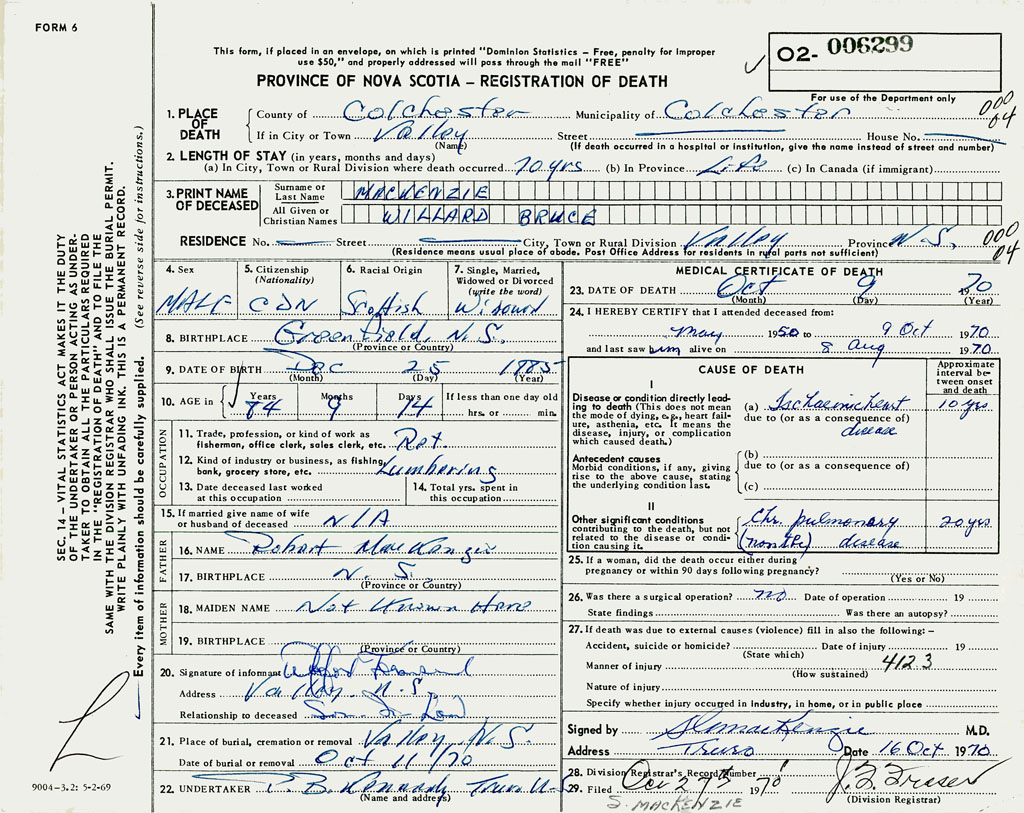 FORM 6
This form, if placed in an envelope, on which is printed "Dominion Statistics – Free, penalty for improper
use $50," and properly addressed will pass through the mail "FREE"
02- 006299
PROVINCE OF NOVA SCOTIA – REGISTRATION OF DEATH
For use of the Department only
000
04
1. PLACE OF DEATH
County of Colchester Municipality of Colchester
If in City or Town Valley Street House No.
(Name) (If death occurred in a hospital or institution, give the name instead of street and number)
2. LENGTH OF STAY (in years, months and days)
(a) In City, Town or Rural Division where death occurred 70 yrs (b) In Province Life (c) In Canada (if immigrant)
3. PRINT NAME OF DECEASED
Surname or Last Name MACKENZIE
All Given or Christian Names WILLARD BRUCE
RESIDENCE No. Street City, Town or Rural Division Valley Province N.S.
(Residence means usual place of abode. Post Office Address for residents in rural parts not sufficient)
000
04
4. Sex
MALE
5. Citizenship
(Nationality)
CDN
6. Racial Origin
Scottish
7. Single, Married,
Widowed or Divorced
(write the word)
Widowed
8. BIRTHPLACE Greenfield, N.S.
(Province or Country)
9. DATE OF BIRTH Dec 25 1885
(Month) (Day) (Year)
10. AGE in Years 84 Months 9 Days 14 If less than one day old
hrs. or min.
OCCUPATION
11. Trade, profession, or kind of work as
fisherman, office clerk, sales clerk, etc. Ret
12. Kind of industry or business, as fishing,
bank, grocery store, etc. Lumbering
13. Date deceased last worked
at this occupation
14. Total yrs. spent in
this occupation
15. If married give name of wife
or husband of deceased N/A
FATHER
16. NAME Robert MacKenzie
17. BIRTHPLACE N.S.
(Province or Country)
MOTHER
18. MAIDEN NAME Not Known Here
19. BIRTHPLACE
(Province or Country)
20. Signature of informant
Address Valley N.S.
Relationship to deceased Son In Law
21. Place of burial, cremation or removal Valley, N.S.
Date of burial or removal Oct 11/70
22. UNDERTAKER Truro N.S.
(Name and address)
MEDICAL CERTIFICATE OF DEATH
23. DATE OF DEATH Oct 9 1970
(Month) (Day) (Year)
24. I HEREBY CERTIFY that I attended deceased from:
May 1950 to 9 Oct 1970
and last saw him alive on 8 Aug 1970
CAUSE OF DEATH
Approximate
interval be-
tween onset
and death
I
Disease or condition directly lead-
ing to death (This does not mean
the mode of dying, e.g., heart fail-
ure, asthenia, etc. It means the
disease, injury, or complication
which caused death.)
(a) Ischaemic heart 10 yrs
due to (or as a consequence of)
disease
Antecedent causes
Morbid conditions, if any, giving
rise to the above cause, stating
the underlying condition last.
(b)
due to (or as a consequence of)
(c)
II
Other significant conditions
contributing to the death, but not
related to the disease or condi-
tion causing it.
Chr. pulmonary 20 yrs
disease
25. If a woman, did the death occur either during
pregnancy or within 90 days following pregnancy?
(Yes or No)
26. Was there a surgical operation? no Date of operation 19
State findings Was there an autopsy?
27. If death was due to external causes (violence) fill in also the following: –
Accident, suicide or homicide? Date of injury 19
(State which)
Manner of injury 412.3
(How sustained)
Nature of injury
Specify whether injury occurred in industry, in home, or in public place
Signed by S. MacKenzie M.D.
Address Truro Date 16 Oct 1970
28. Division Registrar's Record Number
29. Filed Oct 27th 1970 J. F. Fraser
(Division Registrar)
S. MACKENZIE
SEC. 14 – VITAL STATISTICS ACT MAKES IT THE DUTY
OF THE UNDERTAKER OR PERSON ACTING AS UNDER-
TAKER TO OBTAIN ALL THE PARTICULARS REQUIRED
IN THE "REGISTRATION OF DEATH" AND TO FILE THE
SAME WITH THE DIVISION REGISTRAR WHO SHALL ISSUE THE BURIAL PERMIT.
WRITE PLAINLY WITH UNFADING INK. THIS IS A PERMANENT RECORD.
Every item of information should be carefully supplied. (See reverse side for instructions.)
9004-3.2: 5-2-69